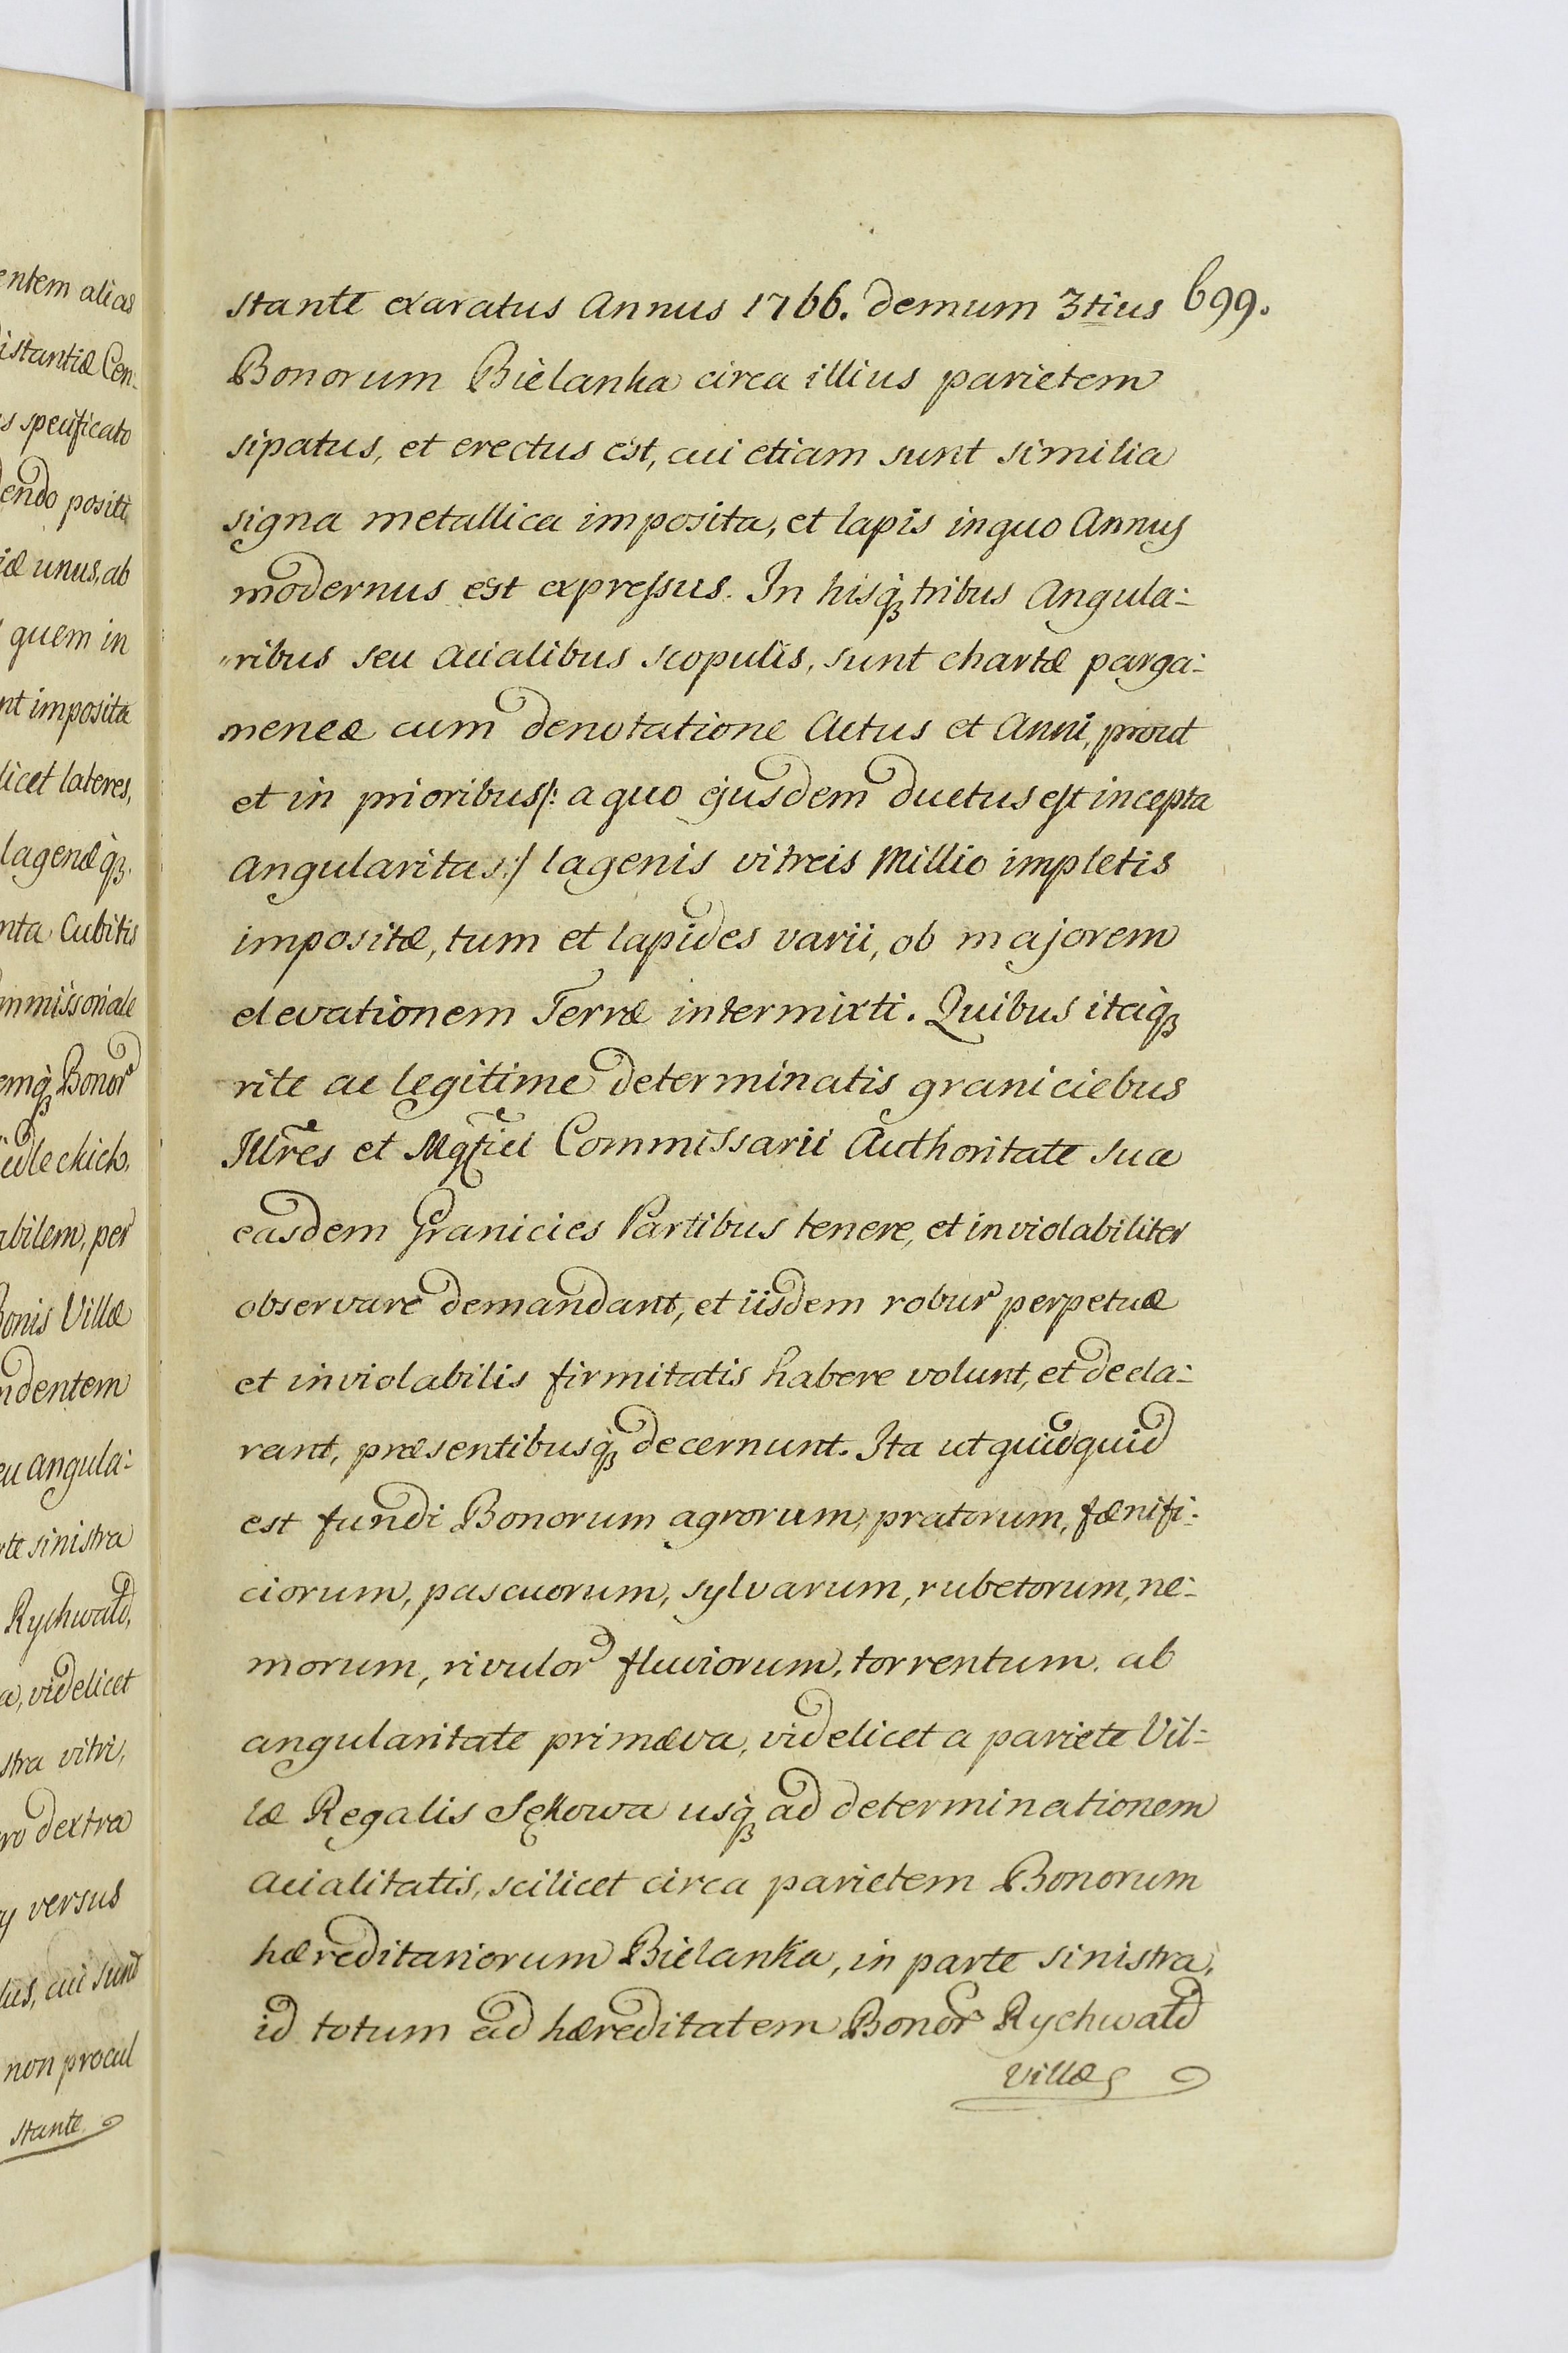 entem alias
istantiæ Cen-
s specificato
dendo positi
iæ unus, ab
quem in
nt imposita
licet lateres,
lagenæq̃ꝫ.
nta Cubitis
mmissoriale
emq̃ꝫ Bonor
abilem, per
Bonis Villæ
ndentem
eu angula:
rte sinistra
Rychwald,
a, videlicet
stra vitri,
ro dextra
y versus
lus, cui sunt
non procul
stante
stante exaratus Annus 1766. demum 3tius 699.
Bonorum Bielanka circa illius parietem
sipatus, et erectus est, cui etiam sunt similia
signa metallica imposita, et lapis inquo Annus
modernus est expressus. In hisq̃ꝫ tribus Angula:
"ribus seu Acialibus scopulis, sunt chartæ parga:
meneæ cum denotatione Actus et Anni, prout
et in prioribus/: a quo ejusdem ductus est incepta
angularitas:/ lagenis vitreis Millio impletis
impositæ, tum et lapides varii, ob majorem
elevationem Terræ intermixti. Quibus itaq̃ꝫ
rite ac legitime determinatis graniciebus
Illr̃es et Mgf̃ici Commissarii Authoritate sua
easdem Granicies Partibus tenere, et inviolabiliter
observare demandant, et iisdem robur perpetuæ
et inviolabilis firmitatis habere volunt, et decla:
rant, præsentibusq̃ꝫ decernunt. Ita ut quidquid
est fundi Bonorum agrorum, pratorum, fænifi:
ciorum, pascuorum, sylvarum, rubetorum, ne:
morum, rivulor fluviorum, torrentum. ab
angularitate primæva, videlicet a pariete Vil:
læ Regalis Sękowa usq̃ꝫ ad determinationem
acialitatis, scilicet circa parietem Bonorum
hæreditariorum Bielanka, in parte sinistra,
id totum ad hæreditatem Bonor Rychwald
Villæ